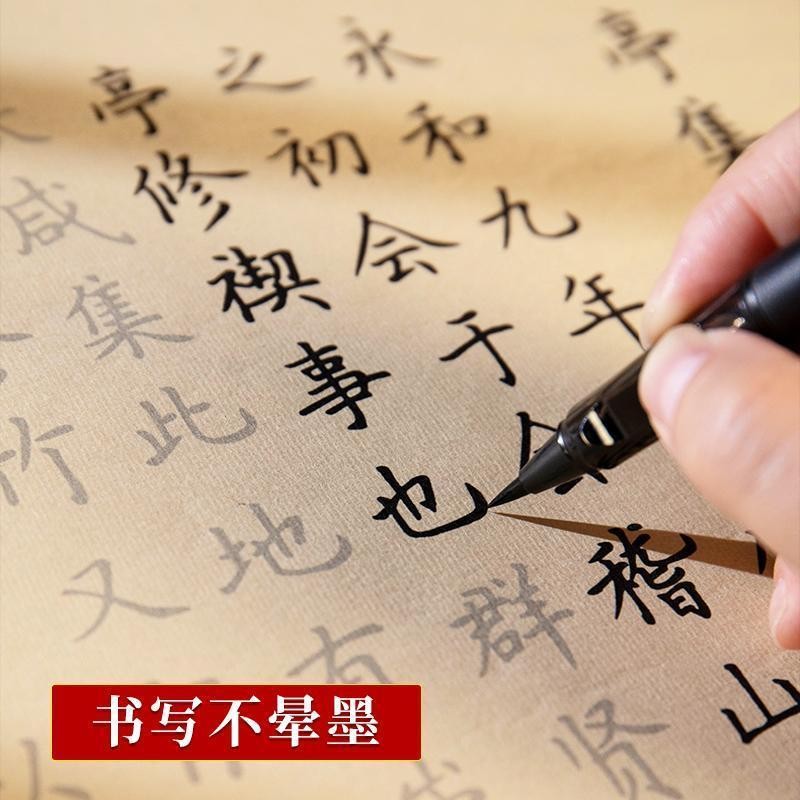 亭集
永和九年
之初会于会稽山
亭修禊事也群贤
咸集此地有
竹又
书写不晕墨